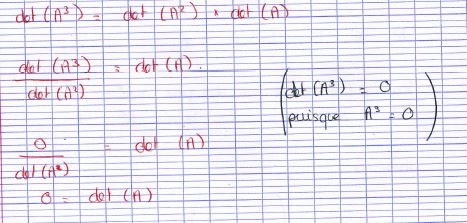 det (A³) = det (A²) × det (A)
det (A³) / det (A²) = det (A).
(det (A³) = 0
puisque A³ = 0)
0 / det (A²) = det (A)
0 = det (A)